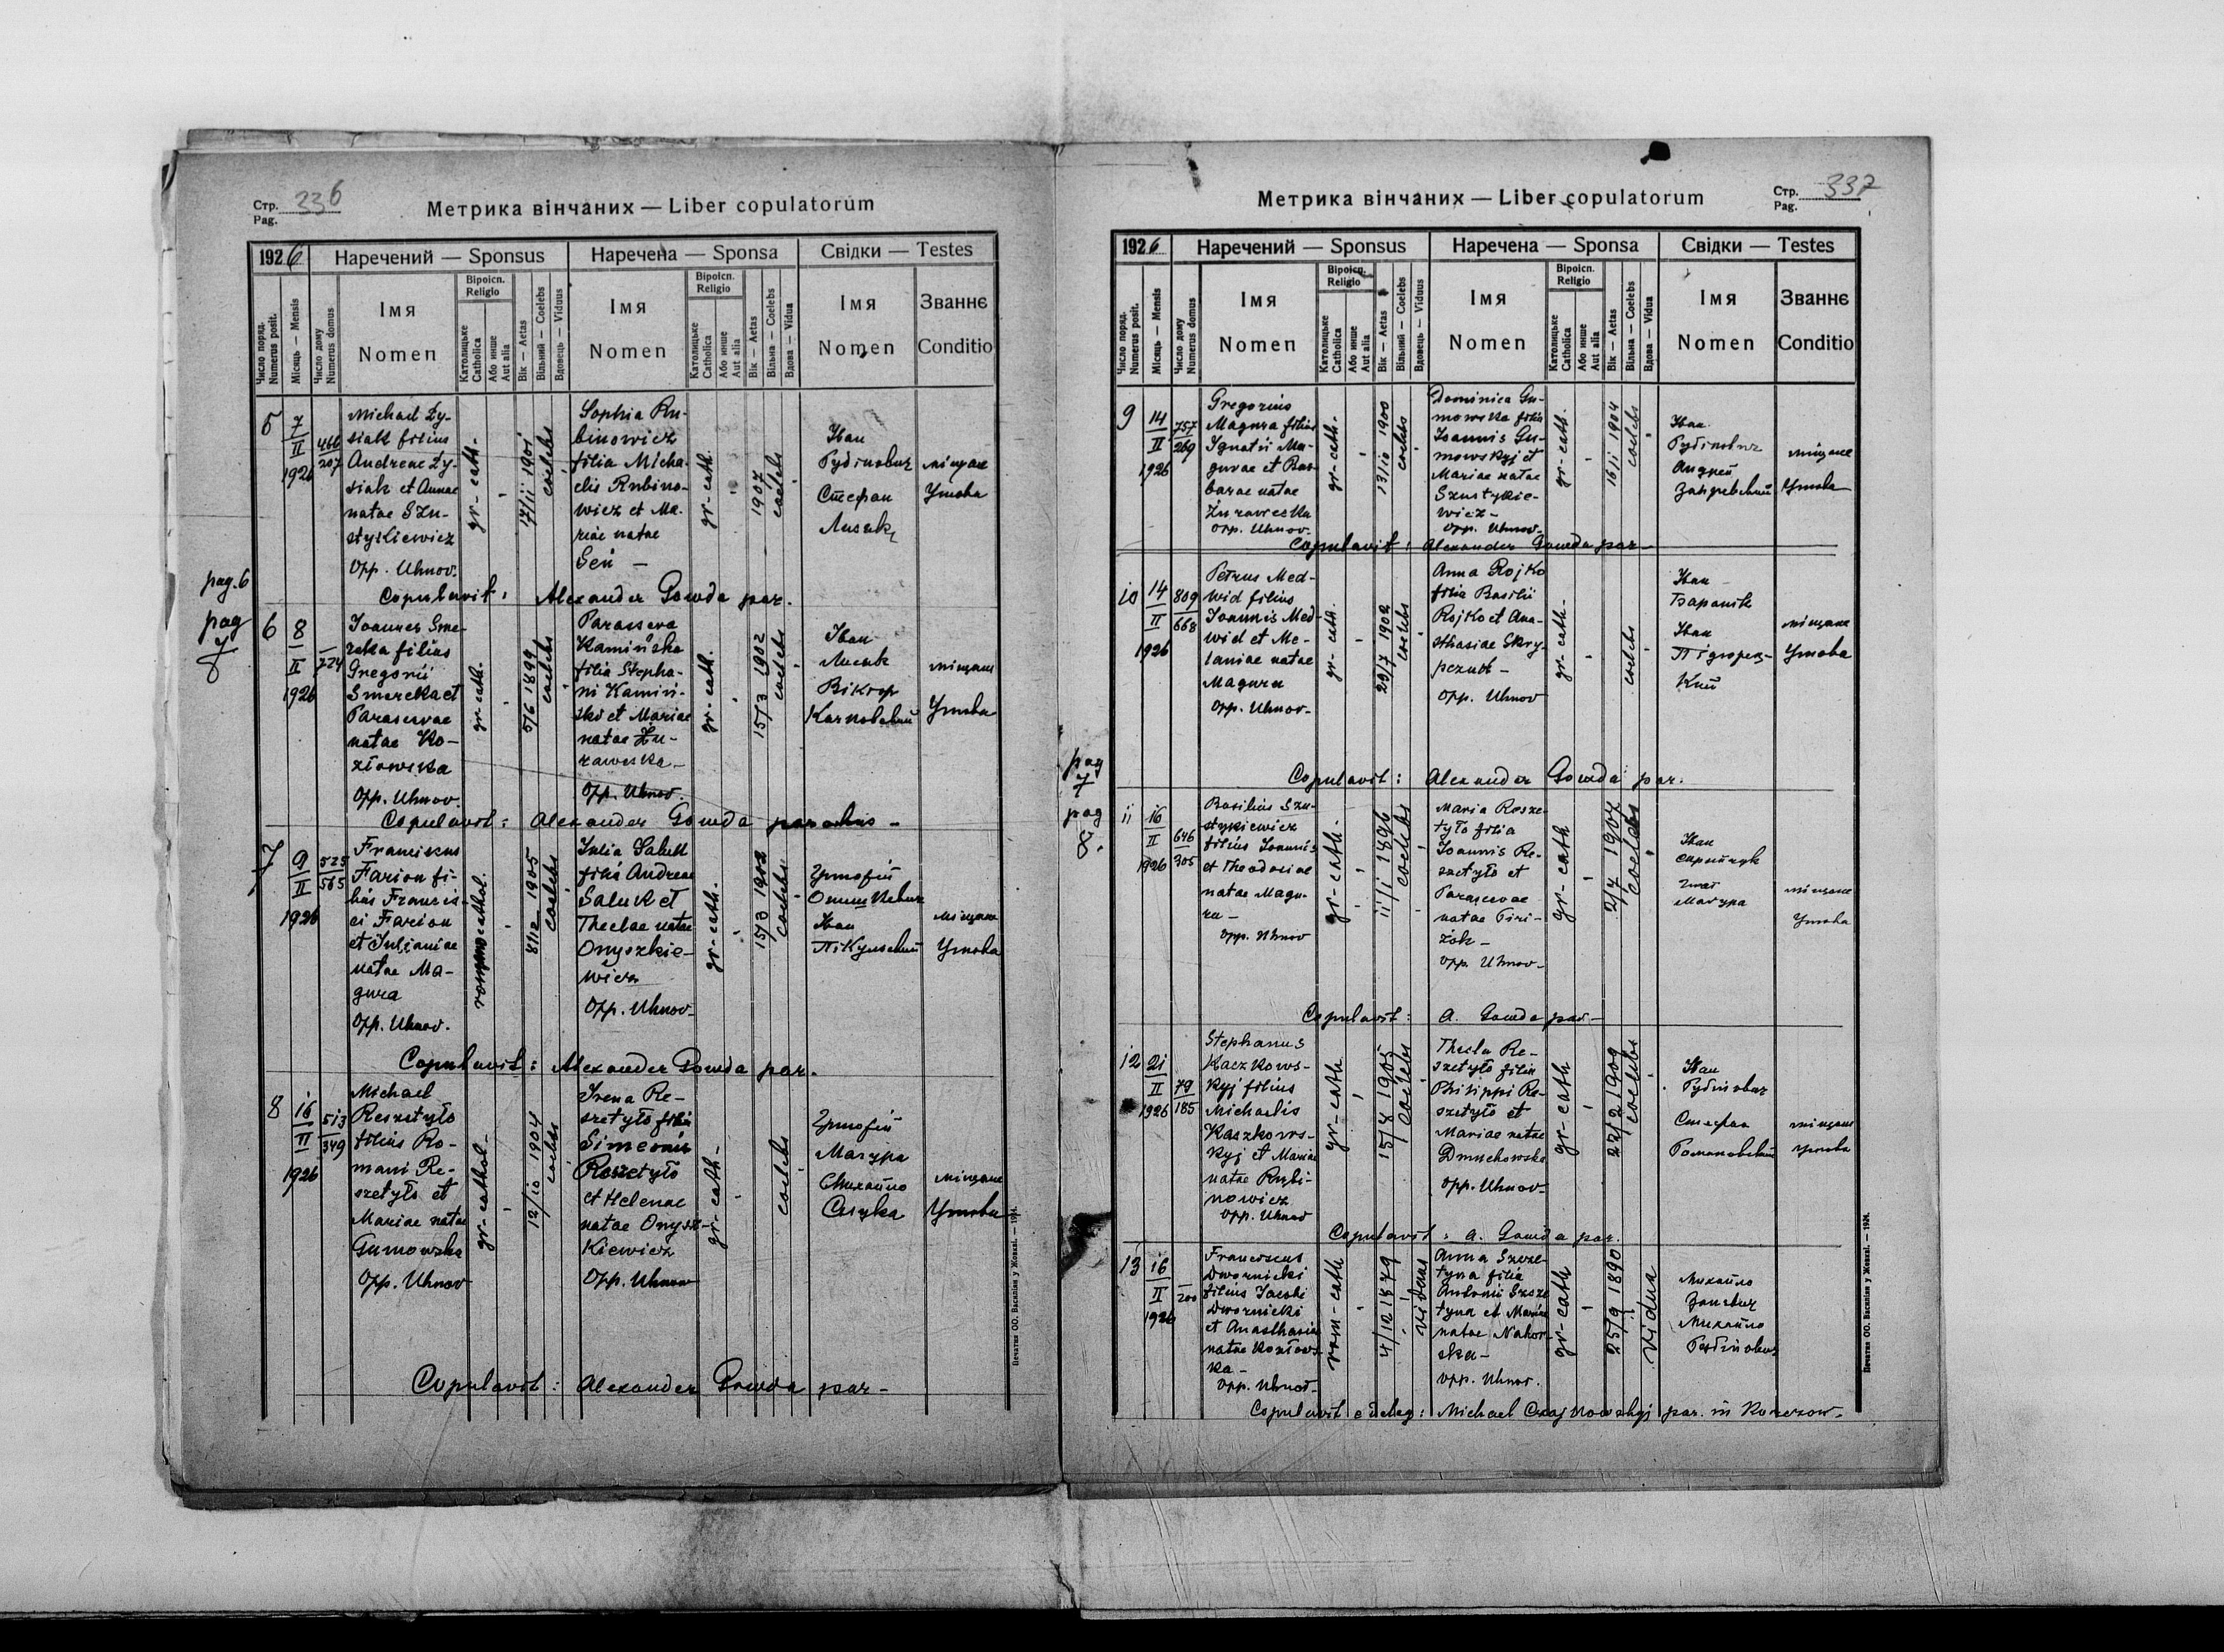 Стр. 336
Pag.
Метрика вінчаних — Liber copulatorum
1926
Наречений — Sponsus
Наречена — Sponsa
Свідки — Testes
Число поряд.
Numerus posit.
Місяць — Mensis
Число дому
Numerus domus
Імя
Nomen
Віроісп.
Religio
Католицьке
Catholica
Або инше
Aut alia
Вік — Aetas
Вільний — Coelebs
Вдовець — Viduus
Імя
Nomen
Віроісп.
Religio
Католицьке
Catholica
Або инше
Aut alia
Вік — Aetas
Вільна — Coelebs
Вдова — Vidua
Імя
Nomen
Званнє
Conditio
5
7
II
1926
466
207
Michael Zy-
siak filius
Andreae Zy-
siak et Annae
natae Szu-
stykiewicz
Opp. Uhnov.
gr-cath.
17/11 1901
coelebs
Sophia Ru-
binowicz
filia Micha-
elis Rubino-
wicz et Ma-
riae natae
Seń —
gr-cath.
1907
coelebs
Іван
Рубінович
Стефан
Лисик
міщане
Угнова
Copulavit: Alexander Gowda par.
pag. 6
pag
7
8
6
8
II
1926
724
Joannes Sme-
reka filius
Gregorii
Smereka et
Parascevae
natae Ko-
złowska
Opp. Uhnov.
gr-cath.
5/6 1899
coelebs
Parasceva
Kamińska
filia Stepha-
ni Kamiń-
ski et Mariae
natae Żu-
rawska
Opp. Uhnov.
gr-cath.
15/3 1902
coelebs
Іван
Лисик
Віктор
міщане
Угнова
Copulavit: Alexander Gowda parochus —
7
9
II
1926
525
565
Franciscus
Farion fi-
lius Francis-
ci Farion
et Julianae
natae Ma-
gura
Opp. Uhnov.
8/12 1905
coelebs
Julia Saluk
filia Andreae
Saluk et
Theclae natae
Onyszkie-
wicz
Opp. Uhnov
gr-cath.
15/3 1902
coelebs
Григорій
Онишкевич
Іван
Пікульський
міщане
Угнова
Copulavit: Alexander Gowda par.
8
16
II
1926
513
349
Michael
Reszetyło
filius Ro-
mani Re-
szetyło et
Mariae natae
Gumowska
Opp. Uhnov
gr-cathol-
12/10 1904
coelebs
Irena Re-
szetyło filia
Simeonis
Reszetyło
et Helenae
natae Onysz-
kiewicz
Opp. Uhnov
gr-cath-
coelebs
Григорій
Маґура
Михайло
міщане
Угнова
Copulavit: Alexander Gowda par-
Печатня ОО. Василіян у Жовкві. — 1924.
Стр. 337
Pag.
Метрика вінчаних — Liber copulatorum
1926
Наречений — Sponsus
Наречена — Sponsa
Свідки — Testes
Число поряд.
Numerus posit.
Місяць — Mensis
Число дому
Numerus domus
Імя
Nomen
Віроісп.
Religio
Католицьке
Catholica
Або инше
Aut alia
Вік — Aetas
Вільний — Coelebs
Вдовець — Viduus
Імя
Nomen
Віроісп.
Religio
Католицьке
Catholica
Або инше
Aut alia
Вік — Aetas
Вільна — Coelebs
Вдова — Vidua
Імя
Nomen
Званнє
Conditio
9
14
II
1926
757
269
Gregorius
Magura filius
Ignatii Ma-
gurae et Bar-
barae natae
Żurawska
Opp. Uhnov-
gr-cath.
13/10 1900
coelebs
Dominica Gu-
mowska filia
Joannis Gu-
mowskyj et
Mariae natae
Szustykie-
wicz —
Opp. Uhnov-
gr-cath.
16/1 1904
coelebs
Іван
Рубінович
Андрей
міщане
Угнова
Copulavit: Alexander Gowda par—
10
14
II
1926
809
668
Petrus Med-
wid filius
Joannis Med-
wid et Me-
laniae natae
Magura
Opp. Uhnov-
gr-cath.
29/7 1902
coelebs
Anna Rojko
filia Basilii
Rojko et Ana-
sthasiae Skry-
pczuk —
Opp. Uhnov
gr-cath-
coelebs
Іван
Бараник
Іван
Підгорец-
кий
міщане
Угнова
Copulavit: Alexander Gowda par.
pag
7
pag
8.
11
16
II
1926
646
305
Basilius Szu-
stykiewicz
filius Joannis
et Theodosiae
natae Magu-
ra —
Opp. Uhnov
gr-cath-
11/1 1896
coelebs
Maria Resze-
tyło filia
Joannis Re-
szetyło et
Parascevae
natae Piri-
żok —
Opp. Uhnov-
gr-cath
2/7 1907
coelebs
Іван
Скрипчук
Ігнат
Маґура
міщане
Угнова
Copulavit: A. Gowda par—
12
21
II
1926
79
185
Stephanus
Kaczkows-
kyj filius
Michaelis
Kaszkows-
kyj et Mariae
natae Rubi-
nowicz
Opp. Uhnov
gr-cath
15/8 1905
coelebs
Thecla Re-
szetyło filia
Philippi Re-
szetyło et
Mariae natae
Dmuchowska
Opp. Uhnov-
gr-cath
22/2 1909
coelebs
Іван
Рубінович
Стефан
Романовський
міщане
Угнова
Copulavit: A. Gowda par.
13
16
II
1926
200
Franciscus
Dwornicki
filius Jacobi
Dwornicki
et Anasthasiae
natae Kozłows-
ka —
Opp. Uhnov-
rom-cath
4/12 1879
viduus
Anna Szcze-
tyna filia
Antonii Szcze-
tyna et Mariae
natae Nahor-
ska —
Opp. Uhnov.
gr-cath
25/9 1890
vidua
Михайло
Михайло
Рубінович
Copulavit e deleg: Michael Czajkowskyj par. in Korczow-
Печатня ОО. Василіян у Жовкві. — 1924.